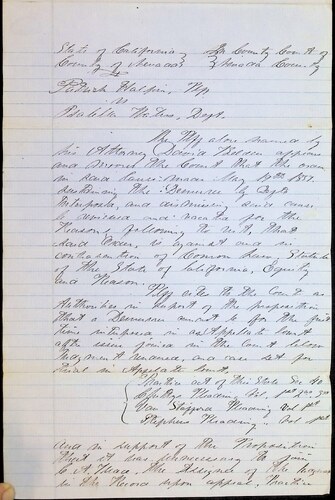 State of California In County Court of
County of Amador Amador County
Patrick Halpin, Plff
vs
Deft.
The Plff above named by
his Attorney David Belden appears
and moves the Court that the order
in said cause made May 18th 185
sustaining the Demurrer by Defts
interposed, and dismissing said cause
be vacated and for the
reasons following to wit, that
said Order, is against and in
contravention of Common Law, Statute
of the State of California, Equity
and Reason.
Plff cites to the Court as
Authorities in support of the proposition
that a Demurrer cannot be for the first
time interposed in an Appellate Court
after issue joined in the Court below
Judgment rendered, and case set for
trial in Appellate Court.
Practice act of this State Sec 40
Chittys Pleading Vol. 1st
Van Pleading Vol 1st
Stephens Pleading Vol 1st
And in support of the Proposition
that it was unnecessary to join
the Assignee of the
in the Record upon appeal, Practice